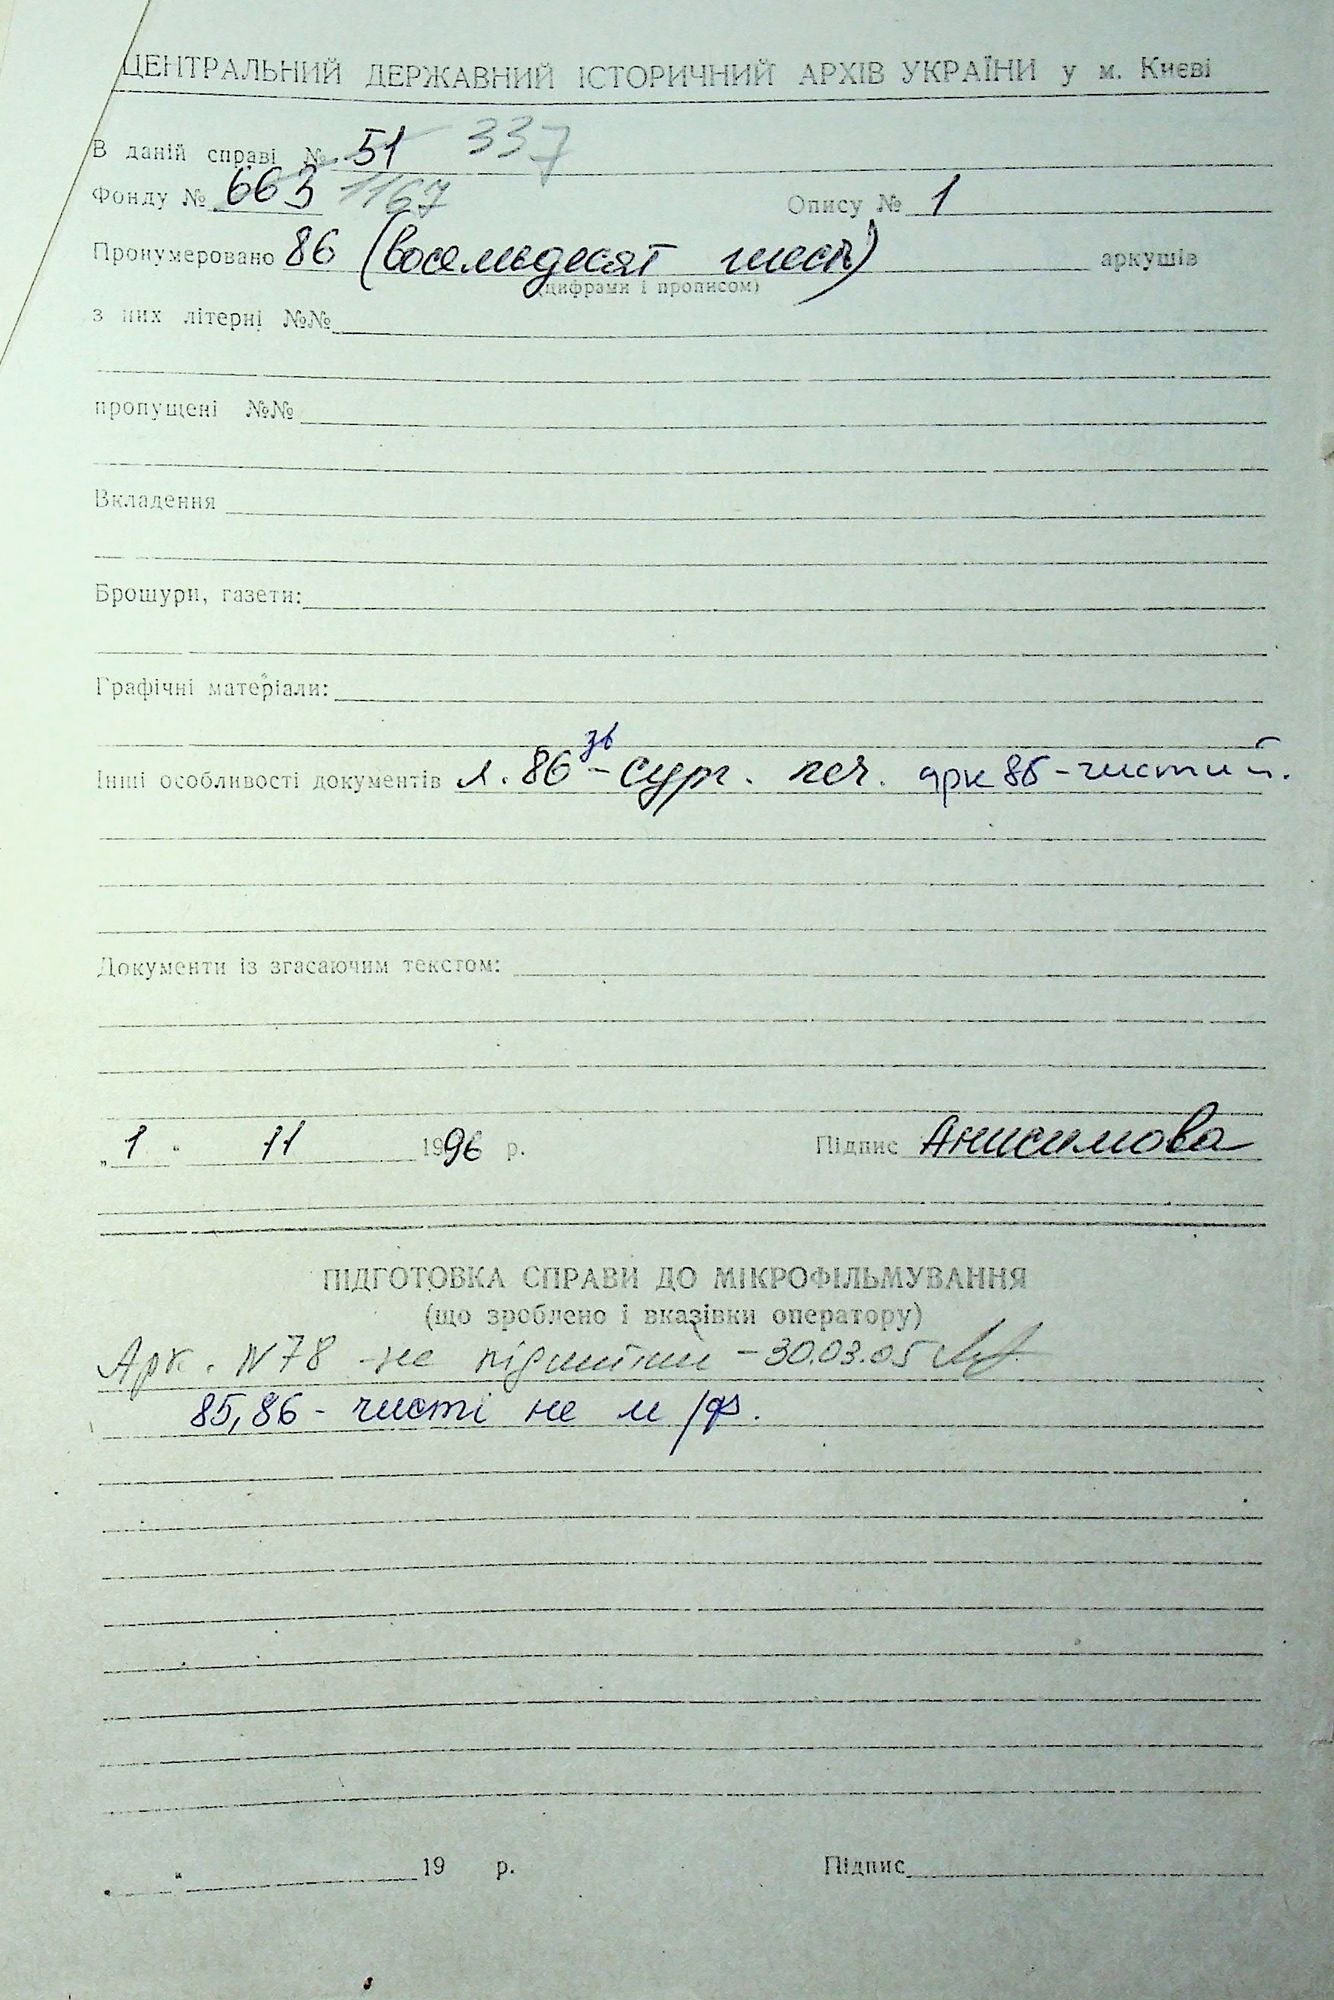 ЦЕНТРАЛЬНИЙ ДЕРЖАВНИЙ ІСТОРИЧНИЙ АРХІВ УКРАЇНИ у м. Києві
В даній справі № 51 337
Фонду № 663 1167 Опису № 1
Пронумеровано 86 (восемьдесят шесть) аркушів
(цифрами і прописом)
з них літерні №№
пропущені №№
Вкладення
Брошури, газети:
Графічні матеріали:
Інші особливості документів л. 86 зв - сург. печ. арк 85 - чистий.
Документи із згасаючим текстом:
„ 1 " 11 1996 р. Підпис Анисимова
ПІДГОТОВКА СПРАВИ ДО МІКРОФІЛЬМУВАННЯ
(що зроблено і вказівки оператору)
Арк. N 78 - не підшитий - 30.03.05
85, 86 - чисті не м/ф.
„ " 19 р. Підпис